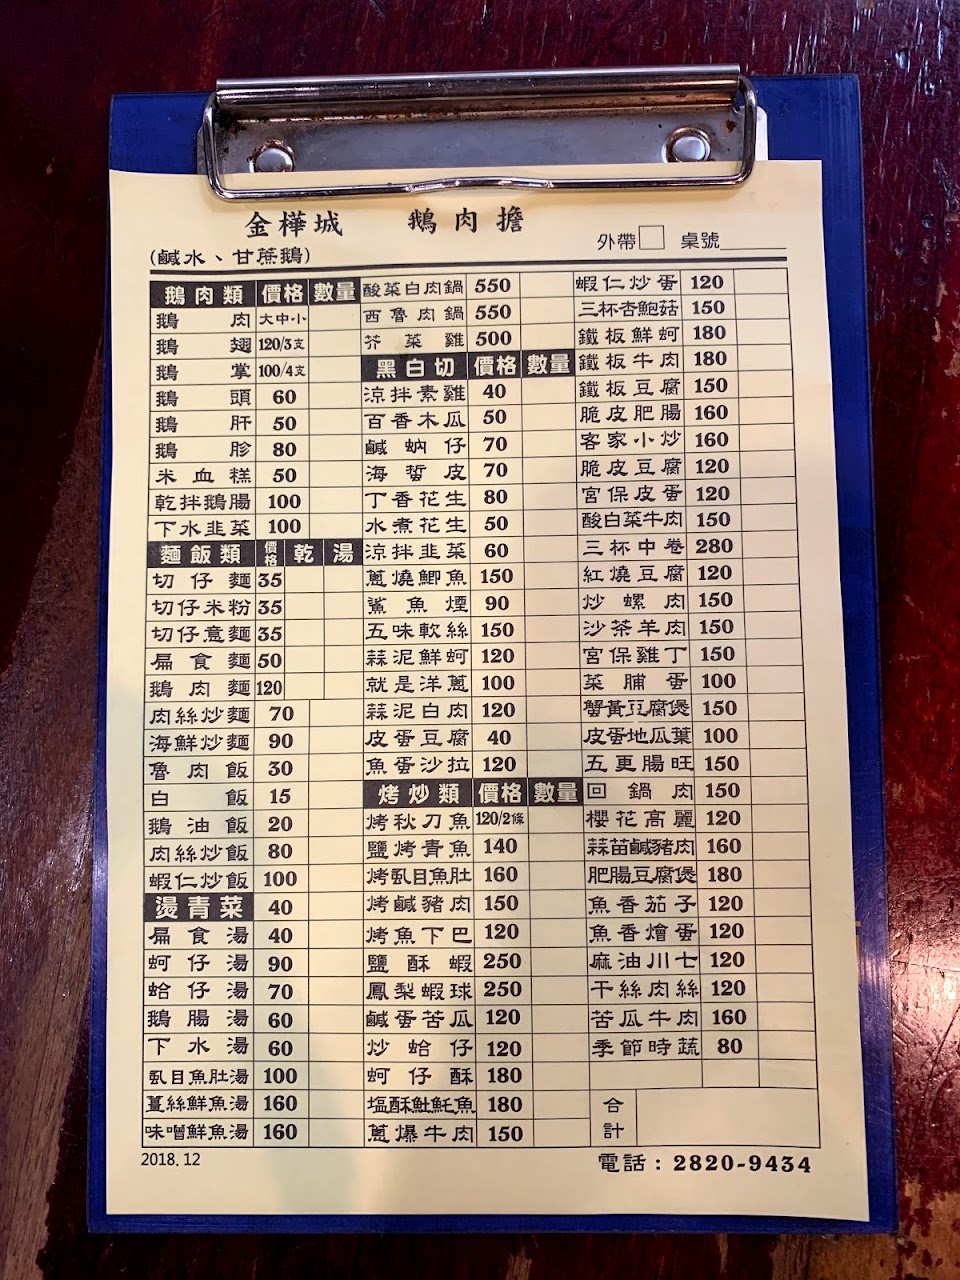 金樺城 鵝肉擔
(鹹水、甘蔗鵝)
外帶 桌號
鵝肉類 價格 數量
鵝肉 大中小
鵝翅 120/3支
鵝掌 100/4支
鵝頭 60
鵝肝 50
鵝胗 80
米血糕 50
乾拌鵝腸 100
下水韭菜 100
麵飯類 價格 乾 湯
切仔麵 35
切仔米粉 35
切仔意麵 35
扁食麵 50
鵝肉麵 120
肉絲炒麵 70
海鮮炒麵 90
魯肉飯 30
白飯 15
鵝油飯 20
肉絲炒飯 80
蝦仁炒飯 100
燙青菜 40
扁食湯 40
蚵仔湯 90
蛤仔湯 70
鵝腸湯 60
下水湯 60
虱目魚肚湯 100
薑絲鮮魚湯 160
味噌鮮魚湯 160
酸菜白肉鍋 550
西魯肉鍋 550
芥菜雞 500
黑白切 價格 數量
涼拌素雞 40
百香木瓜 50
鹹蚋仔 70
海蜇皮 70
丁香花生 80
水煮花生 50
涼拌韭菜 60
蔥燒鯽魚 150
鯊魚煙 90
五味軟絲 150
蒜泥鮮蚵 120
就是洋蔥 100
蒜泥白肉 120
皮蛋豆腐 40
魚蛋沙拉 120
烤炒類 價格 數量
烤秋刀魚 120/2條
鹽烤青魚 140
烤虱目魚肚 160
烤鹹豬肉 150
烤魚下巴 120
鹽酥蝦 250
鳳梨蝦球 250
鹹蛋苦瓜 120
炒蛤仔 120
蚵仔酥 180
塩酥魠魠魚 180
蔥爆牛肉 150
蝦仁炒蛋 120
三杯杏鮑菇 150
鐵板鮮蚵 180
鐵板牛肉 180
鐵板豆腐 150
脆皮肥腸 160
客家小炒 160
脆皮豆腐 120
宮保皮蛋 120
酸白菜牛肉 150
三杯中卷 280
紅燒豆腐 120
炒螺肉 150
沙茶羊肉 150
宮保雞丁 150
菜脯蛋 100
蟹黃豆腐煲 150
皮蛋地瓜葉 100
五更腸旺 150
回鍋肉 150
櫻花高麗 120
蒜苗鹹豬肉 160
肥腸豆腐煲 180
魚香茄子 120
魚香燴蛋 120
麻油川七 120
干絲肉絲 120
苦瓜牛肉 160
季節時蔬 80
合計
2018.12
電話：2820-9434